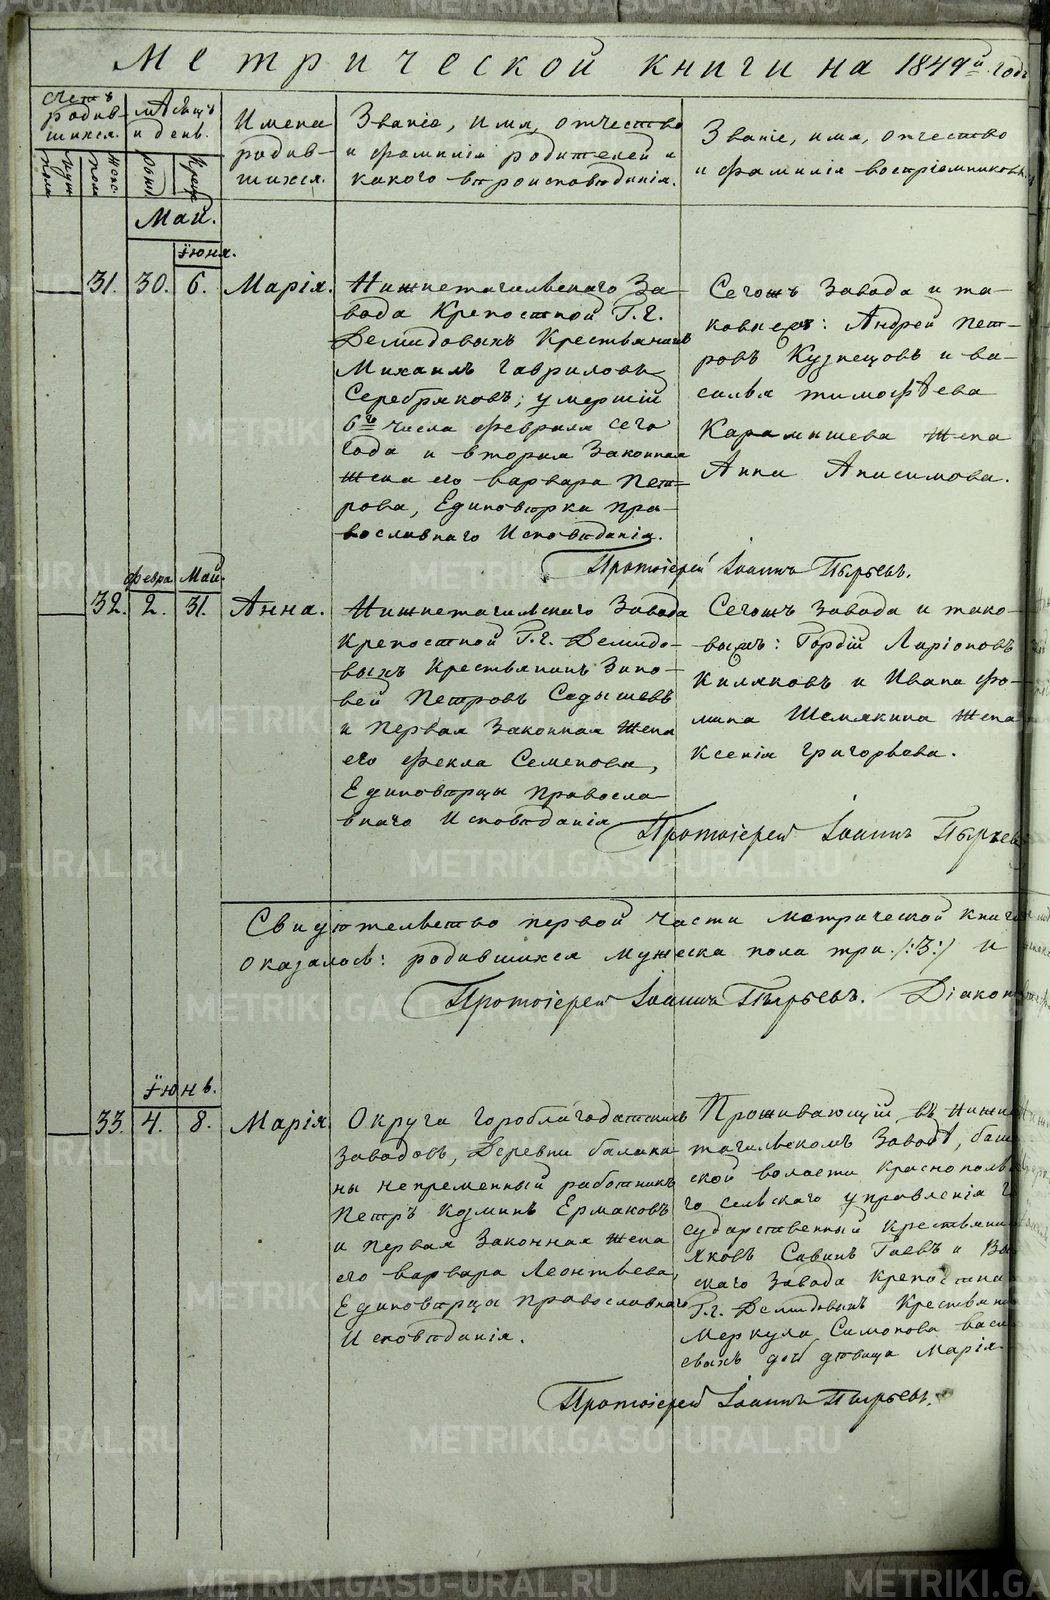 Метрической книги на 1849й годъ
Счетъ родив-шихся.
Муж. пола
Женс. пола
Мѣсяцъ и день.
Рожд.
Крещ.
Имена
родив-
шихся.
Званіе, имя, отчество
и фамилія родителей и
какого вѣроисповѣданія.
Званіе, имя, отчество
и фамилія воспріемниковъ.
Май.
Іюня.
31. 30. 6. Марія.
Нижнетагильскаго За-
вода Крепостной Г.г.
Демидовыхъ Крестьянинъ
Михаилъ Гавриловъ
Серебряковъ; умершій
6го числа февраля сего
года и вторая Законная
жена его варвара Пет-
рова, Единовѣрка Пра-
вославнаго Исповѣданія.
Сегожъ Завода и та-
ковыхъ: Андрей Пет-
ровъ Кузнецовъ и ва-
силья тимофѣева
Карамышева жена
Анна Анисимова.
Протоіерей Іоаннъ Пырьевъ.
Февра. Май.
32. 2. 31. Анна.
Нижнетагильскаго Завода
Крепостной Г.г. Демидо-
выхъ Крестьянинъ Зино-
вей Петровъ Садышевъ
и Первая Законная жена
его Фекла Семенова,
Единовѣрцы Правосла-
внаго Исповѣданія
Сегожъ завода и тако-
выхъ: Гордій Ларіоновъ
Киляковъ и Ивана Фо-
мина Шемякина жена
Ксенія григорьева.
Протоіерей Іоаннъ Пырьевъ
Свидѣтельство первой части метрической книги
оказалось: родившихся мужеска пола три /:3:/ и
Протоіерей Іоаннъ Пырьевъ. Діаконъ
Іюнь.
33. 4. 8. Марія
Округа гороблагодатскихъ
Заводовъ, Деревни балаки-
ны непременный работникъ
Петръ Козминъ Ермаковъ
и первая Законная жена
его варвара Леонтьева,
Единовѣрцы православнаго
Исповѣданія.
Проживающій въ Нижне
тагильскомъ Заводѣ,
ской волости Краснополь
го сельскаго управленія го
сударственный Крестьянинъ
яковъ Савинъ Гаевъ и
скаго Завода Крепостна
Г.г. Демидовыхъ Крестьянина
Меркула Симонова
евыхъ дочь дѣвица Марія.
Протоіерей Іоаннъ Пырьевъ.
METRIKI.GASO-URAL.RU